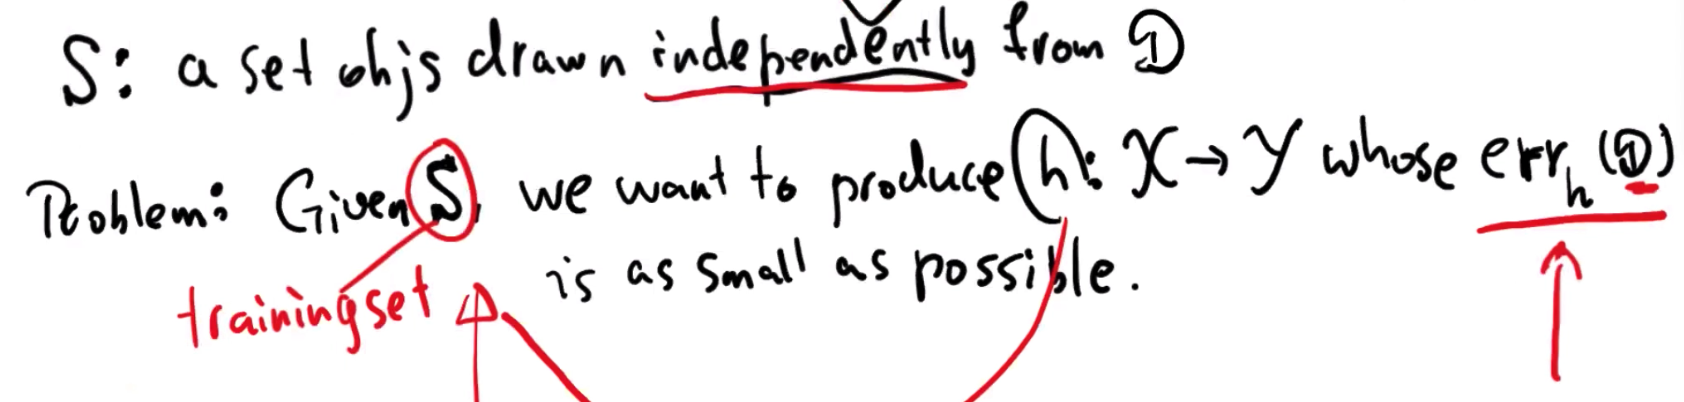 S: a set objs drawn independently from 𝒟
Problem: Given S, we want to produce h: X → Y whose err_h (𝒟)
is as small as possible.
training set